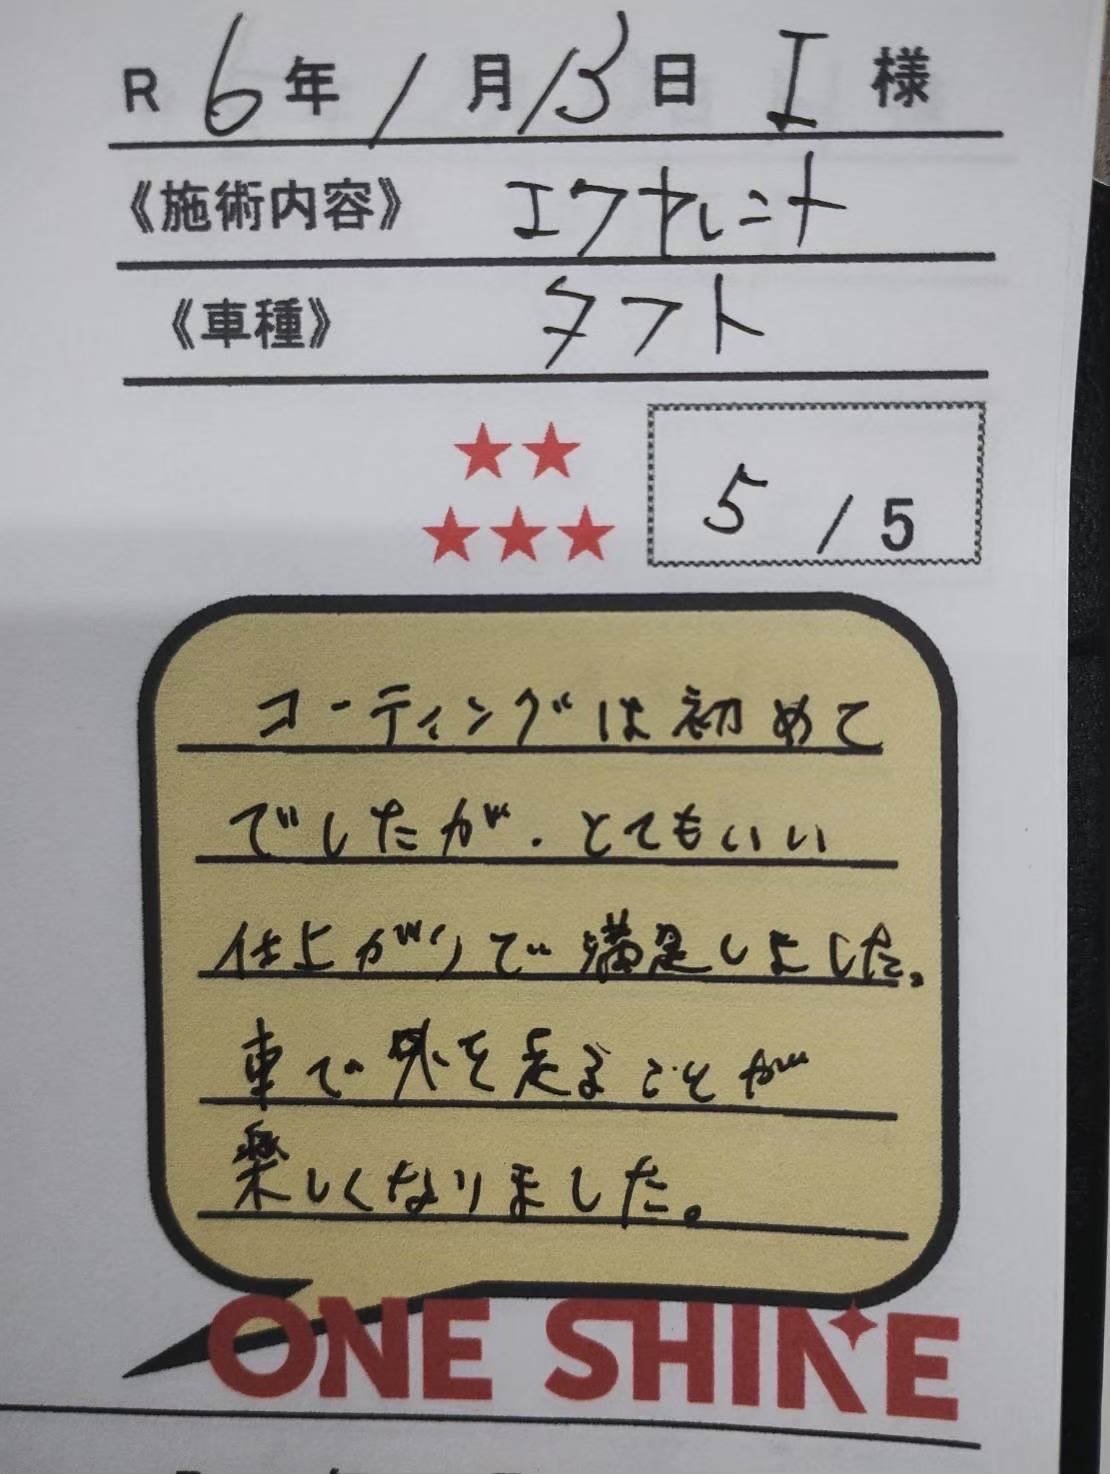 R 6年 1月 13日 I 様
《施術内容》 エクセレント
《車種》 タフト
5 / 5
コーティングは初めて
でしたが、とてもいい
仕上がりで満足しました。
車で外を走ることが
楽しくなりました。
ONE SHINE